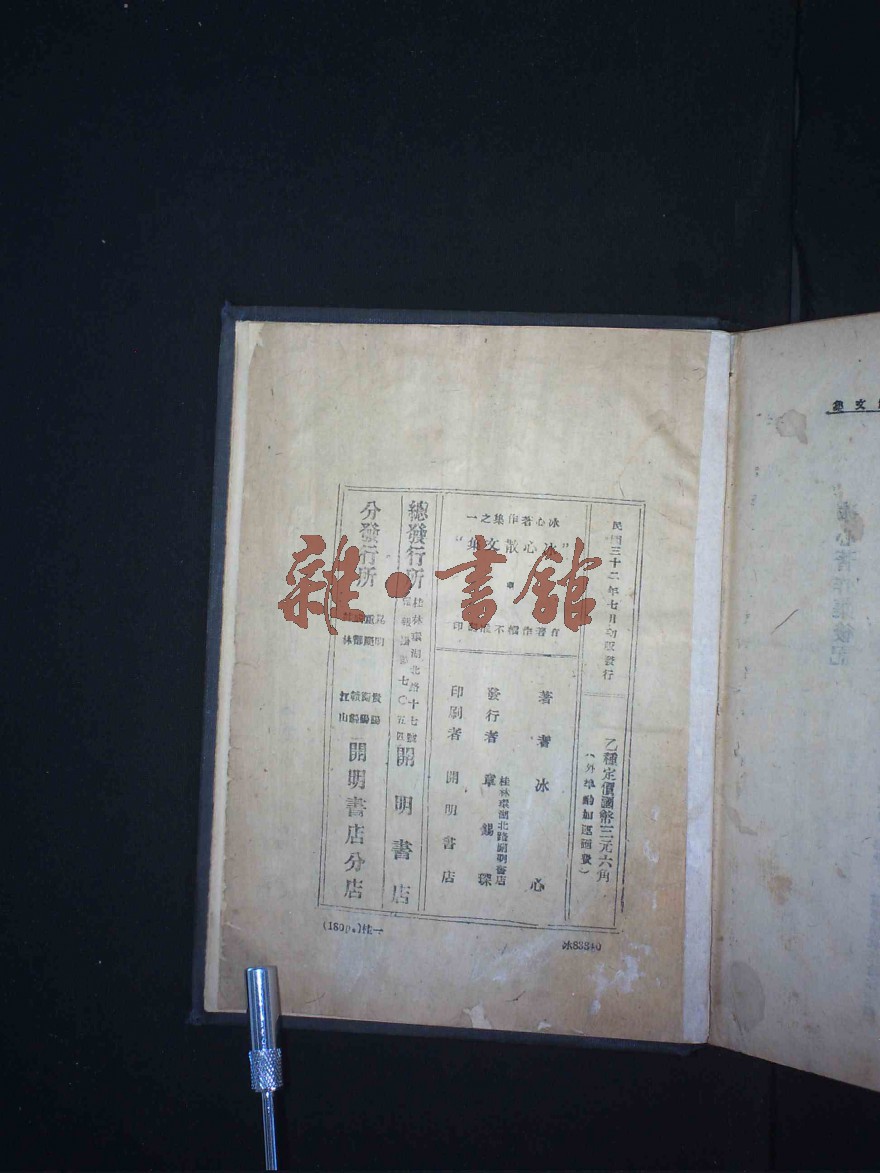 民國三十二年七月初版發行
乙種定價國幣三元六角
(外埠酌加運匯費)
冰心著作集之一
“冰心散文集”
有著作權不准翻印
著者 冰心
發行者 章錫琛
桂林環湖北路開明書店
印刷者 開明書店
總發行所
桂林環湖北路十七號
開明書店
分發行所
開明書店分店
(180p.)桂一
冰83840
雜·書館
著作集後記